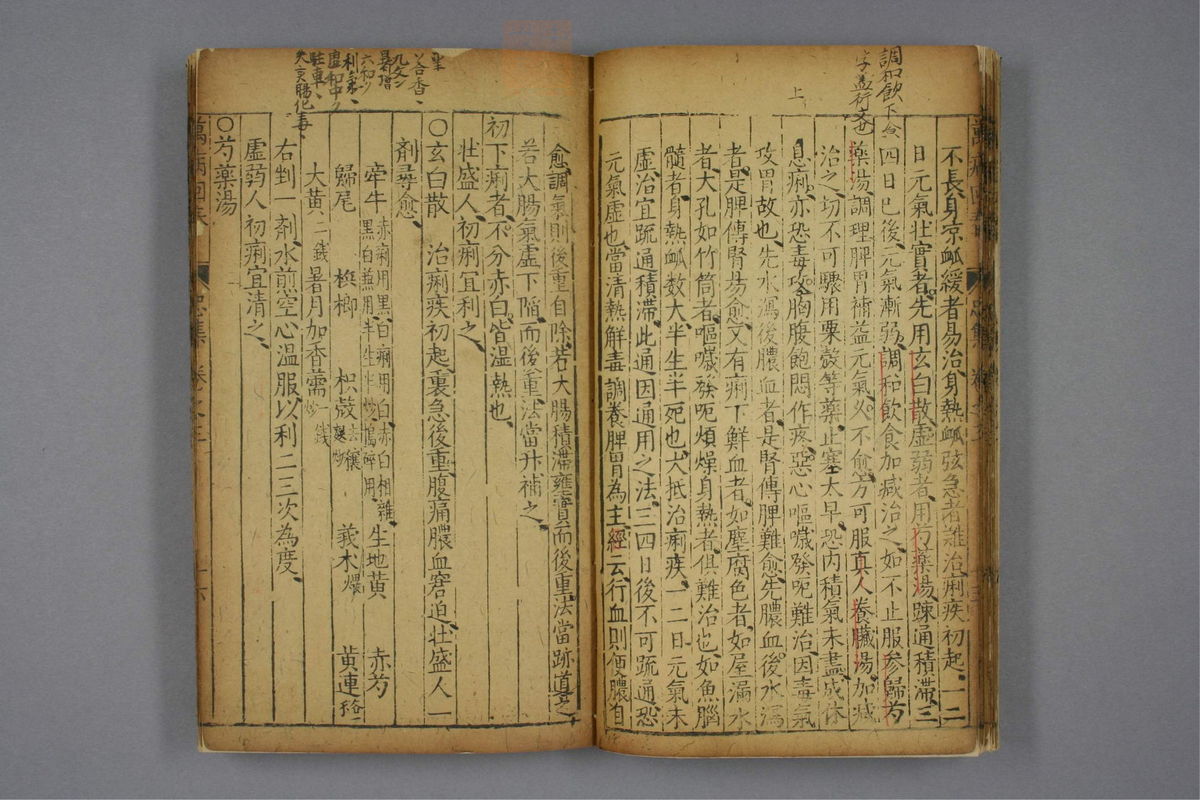 調和飲下食
字益衍文也
上
不長身凉衇緩者易治身熱衇弦急者難治痢疾初起一二
日元氣壯實者先用玄白散虛弱者用芍藥湯踈通積滯三
四日已後元氣漸弱調和飲食加减治之如不止服參歸芍
藥湯調理脾胃補益元氣久不愈方可服真人養臟湯加减
治之切不可驟用粟殼等藥止塞太早恐内積氣未盡成休
息痢亦恐毒攻胸腹飽悶作疼惡心嘔噦發呃難治因毒氣
攻胃故也先水瀉後膿血者是腎傳脾難愈先膿血後水瀉
者是脾傳腎易愈又有痢下鮮血者如塵腐色者如屋漏水
者大孔如竹筒者嘔噦發呃煩燥身熱者俱難治也如魚腦
髓者身熱衇数大半生半死也大抵治痢疾一二日元氣未
虛治宜疏通積滯此通因通用之法三四日後不可疏通恐
元氣虛也當清熱解毒調養脾胃為主經云行血則便膿自
愈調氣則後重自除若大腸積滯壅實而後重法當踈導之
若大腸氣虛下陷而後重法當升補之
初下痢者不分赤白皆湿熱也
壯盛人初痢宜利之
〇玄白散 治痢疾初起裏急後重腹痛膿血窘迫壯盛人一
劑尋愈
牽牛赤痢用黑白痢用白赤白相雜
黑白兼用半生半炒搗碎用 生地黃 赤芍
歸尾 梹榔 枳殼去穰麩炒 莪木煨 黃連各一
大黃二銭暑月加香薷一銭炒
右剉一劑水煎空心温服以利二三次為度
虛弱人初痢宜清之
〇芍藥湯
萬病回春
忠集 卷之三